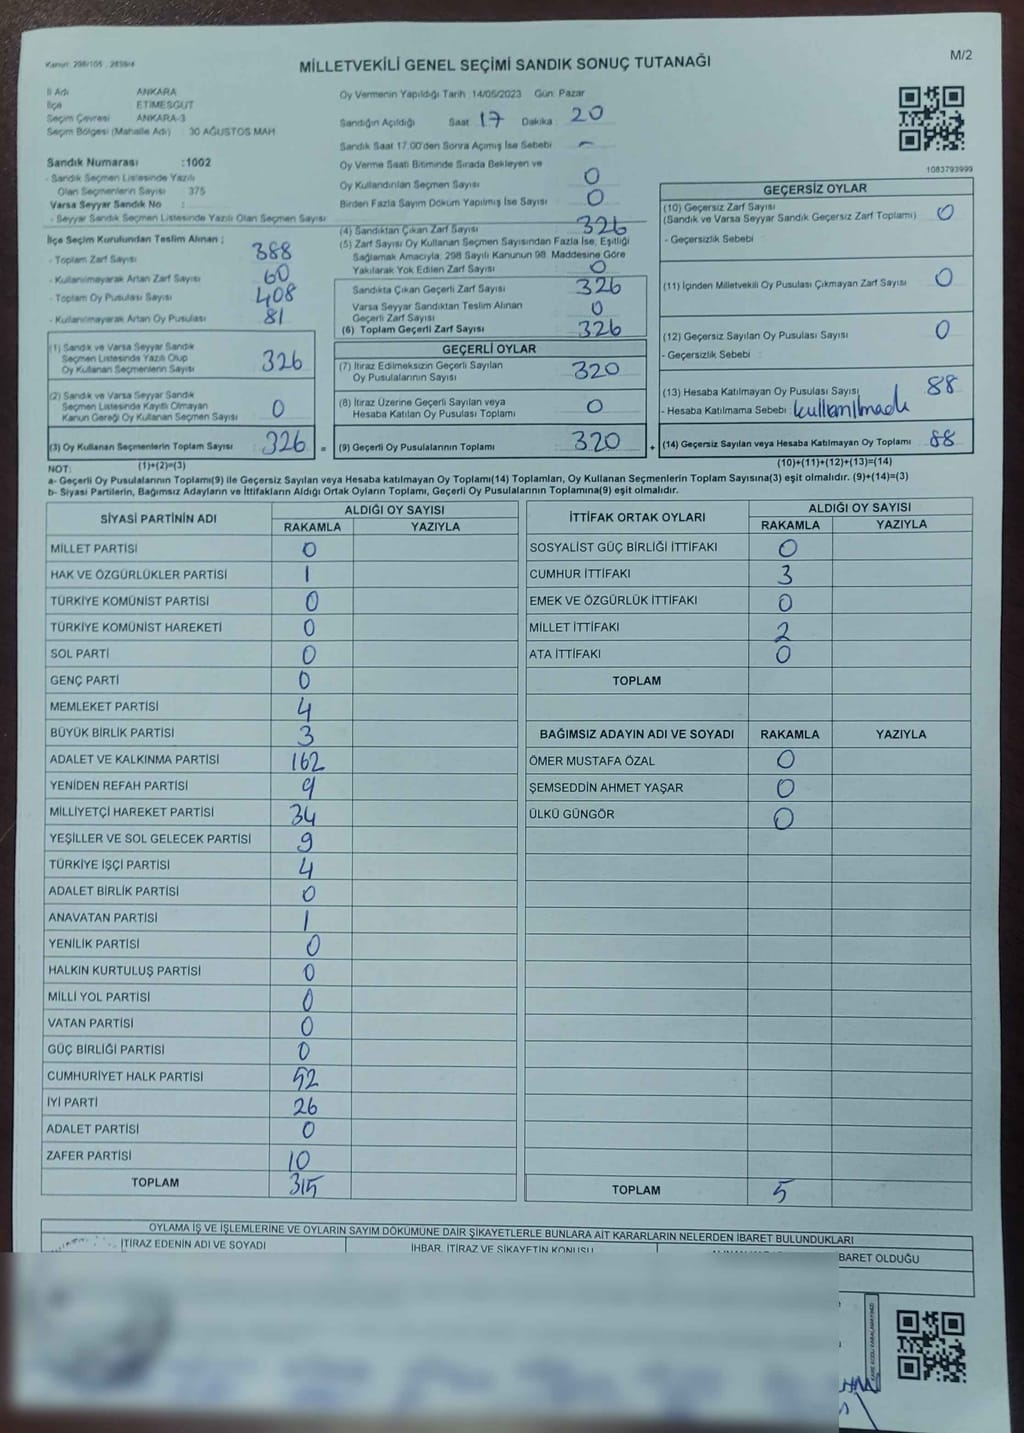 Kanun: 298/105 , 2839/4
MİLLETVEKİLİ GENEL SEÇİMİ SANDIK SONUÇ TUTANAĞI
M/2
İl Adı ANKARA
İlçe ETİMESGUT
Seçim Çevresi ANKARA-3
Seçim Bölgesi (Mahalle Adı) 30 AĞUSTOS MAH
Sandık Numarası :1002
- Sandık Seçmen Listesinde Yazılı
Olan Seçmenlerin Sayısı : 375
Varsa Seyyar Sandık No :
- Seyyar Sandık Seçmen Listesinde Yazılı Olan Seçmen Sayısı
İlçe Seçim Kurulundan Teslim Alınan ;
- Toplam Zarf Sayısı 388
- Kullanılmayarak Artan Zarf Sayısı 60
- Toplam Oy Pusulası Sayısı 408
- Kullanılmayarak Artan Oy Pusulası 81
(1) Sandık ve Varsa Seyyar Sandık
Seçmen Listesinde Yazılı Olup
Oy Kullanan Seçmenlerin Sayısı 326
(2) Sandık ve Varsa Seyyar Sandık
Seçmen Listesinde Kayıtlı Olmayan
Kanun Gereği Oy Kullanan Seçmen Sayısı 0
(3) Oy Kullanan Seçmenlerin Toplam Sayısı 326 =
(1)+(2)=(3)
Oy Vermenin Yapıldığı Tarih :14/05/2023 Gün: Pazar
Sandığın Açıldığı Saat 17 Dakika : 20
Sandık Saat 17.00'den Sonra Açımış İse Sebebi -
Oy Verme Saati Bitiminde Sırada Bekleyen ve
Oy Kullandırılan Seçmen Sayısı 0
Birden Fazla Sayım Döküm Yapılmış İse Sayısı 0
(4) Sandıktan Çıkan Zarf Sayısı 326
(5) Zarf Sayısı Oy Kullanan Seçmen Sayısından Fazla İse, Eşitliği
Sağlamak Amacıyla, 298 Sayılı Kanunun 98. Maddesine Göre
Yakılarak Yok Edilen Zarf Sayısı 0
Sandıkta Çıkan Geçerli Zarf Sayısı 326
Varsa Seyyar Sandıktan Teslim Alınan
Geçerli Zarf Sayısı 0
(6) Toplam Geçerli Zarf Sayısı 326
GEÇERLİ OYLAR
(7) İtiraz Edilmeksizin Geçerli Sayılan
Oy Pusulalarının Sayısı 320
(8) İtiraz Üzerine Geçerli Sayılan veya
Hesaba Katılan Oy Pusulası Toplamı 0
(9) Geçerli Oy Pusulalarının Toplamı 320 +
1083793999
GEÇERSİZ OYLAR
(10) Geçersiz Zarf Sayısı
(Sandık ve Varsa Seyyar Sandık Geçersiz Zarf Toplamı) 0
- Geçersizlik Sebebi
(11) İçinden Milletvekili Oy Pusulası Çıkmayan Zarf Sayısı 0
(12) Geçersiz Sayılan Oy Pusulası Sayısı 0
- Geçersizlik Sebebi
(13) Hesaba Katılmayan Oy Pusulası Sayısı 88
- Hesaba Katılmama Sebebi : kullanılmadı
(14) Geçersiz Sayılan veya Hesaba Katılmayan Oy Toplamı 88
(10)+(11)+(12)+(13)=(14)
NOT:
a- Geçerli Oy Pusulalarının Toplamı(9) ile Geçersiz Sayılan veya Hesaba katılmayan Oy Toplamı(14) Toplamları, Oy Kullanan Seçmenlerin Toplam Sayısına(3) eşit olmalıdır. (9)+(14)=(3)
b- Siyasi Partilerin, Bağımsız Adayların ve İttifakların Aldığı Ortak Oyların Toplamı, Geçerli Oy Pusulalarının Toplamına(9) eşit olmalıdır.
SİYASİ PARTİNİN ADI ALDIĞI OY SAYISI
RAKAMLA YAZIYLA
MİLLET PARTİSİ 0
HAK VE ÖZGÜRLÜKLER PARTİSİ 1
TÜRKİYE KOMÜNİST PARTİSİ 0
TÜRKİYE KOMÜNİST HAREKETİ 0
SOL PARTİ 0
GENÇ PARTİ 0
MEMLEKET PARTİSİ 4
BÜYÜK BİRLİK PARTİSİ 3
ADALET VE KALKINMA PARTİSİ 162
YENİDEN REFAH PARTİSİ 9
MİLLİYETÇİ HAREKET PARTİSİ 34
YEŞİLLER VE SOL GELECEK PARTİSİ 9
TÜRKİYE İŞÇİ PARTİSİ 4
ADALET BİRLİK PARTİSİ 0
ANAVATAN PARTİSİ 1
YENİLİK PARTİSİ 0
HALKIN KURTULUŞ PARTİSİ 0
MİLLİ YOL PARTİSİ 0
VATAN PARTİSİ 0
GÜÇ BİRLİĞİ PARTİSİ 0
CUMHURİYET HALK PARTİSİ 52
İYİ PARTİ 26
ADALET PARTİSİ 0
ZAFER PARTİSİ 10
TOPLAM 315
İTTİFAK ORTAK OYLARI ALDIĞI OY SAYISI
RAKAMLA YAZIYLA
SOSYALİST GÜÇ BİRLİĞİ İTTİFAKI 0
CUMHUR İTTİFAKI 3
EMEK VE ÖZGÜRLÜK İTTİFAKI 0
MİLLET İTTİFAKI 2
ATA İTTİFAKI 0
TOPLAM
BAĞIMSIZ ADAYIN ADI VE SOYADI RAKAMLA YAZIYLA
ÖMER MUSTAFA ÖZAL 0
ŞEMSEDDİN AHMET YAŞAR 0
ÜLKÜ GÜNGÖR 0
TOPLAM 5
OYLAMA İŞ VE İŞLEMLERİNE VE OYLARIN SAYIM DÖKÜMÜNE DAİR ŞİKAYETLERLE BUNLARA AİT KARARLARIN NELERDEN İBARET BULUNDUKLARI
İTİRAZ EDENİN ADI VE SOYADI İHBAR, İTİRAZ VE ŞİKAYETİN KONUSU İBARET OLDUĞU